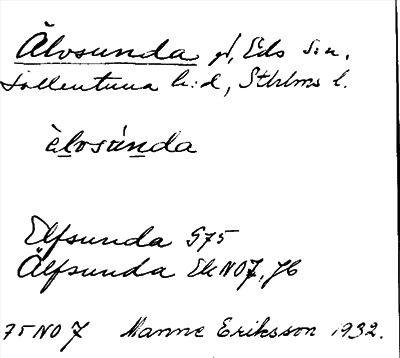 Älvsunda gd, Eds sn,
Sollentuna h:d, Sthlms l.
èlvsúnda
Elfsunda G75
Älfsunda Ek NO7, JC
75 NO 7 Manne Eriksson 1932.